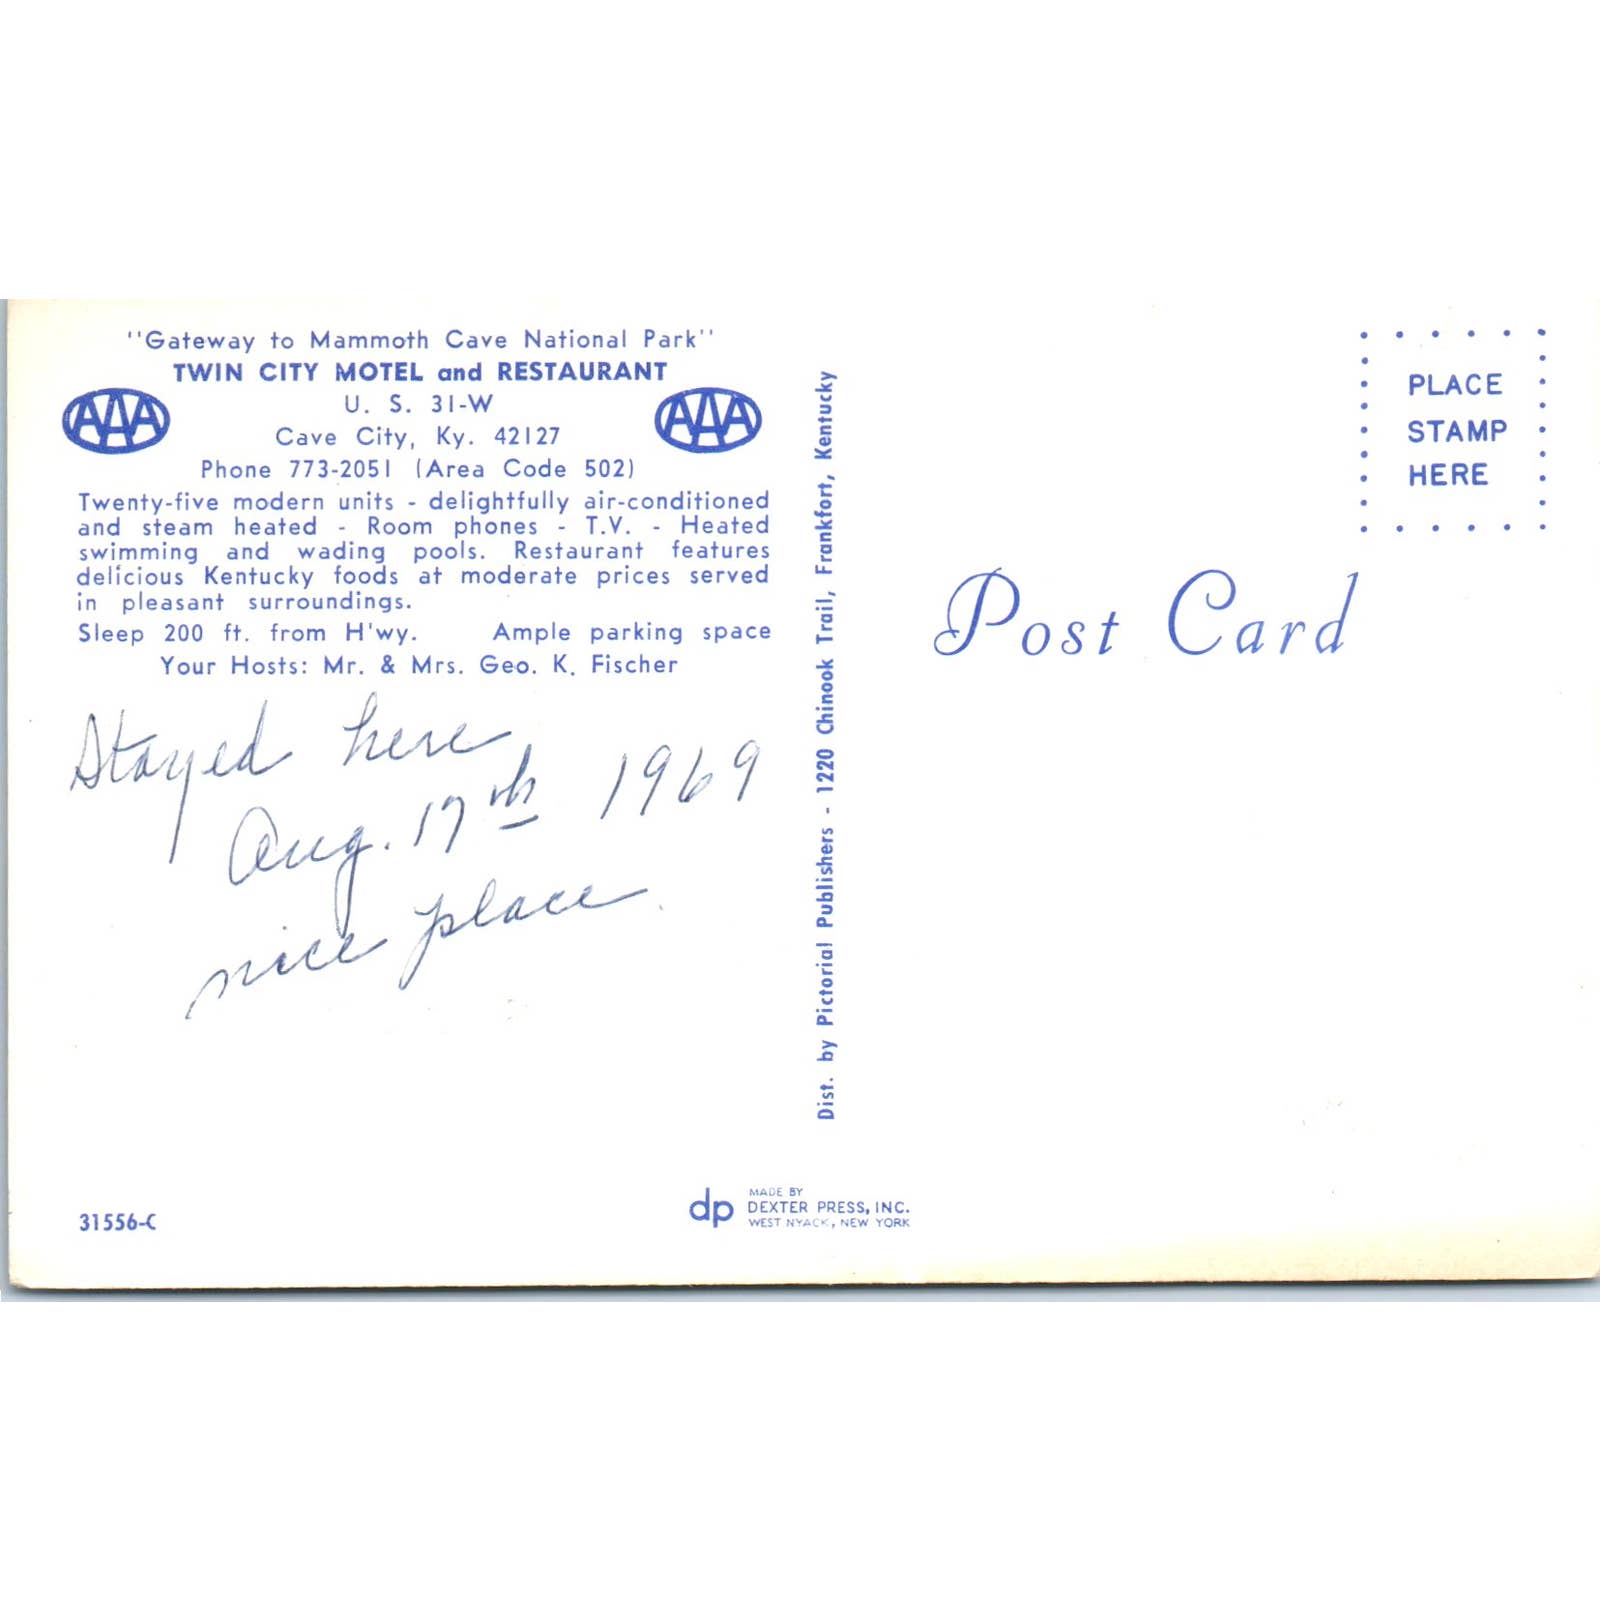 "Gateway to Mammoth Cave National Park"
TWIN CITY MOTEL and RESTAURANT
AAA
AAA
U. S. 31-W
Cave City, Ky. 42127
Phone 773-2051 (Area Code 502)
Twenty-five modern units - delightfully air-conditioned
and steam heated - Room phones - T.V. - Heated
swimming and wading pools. Restaurant features
delicious Kentucky foods at moderate prices served
in pleasant surroundings.
Sleep 200 ft. from H'wy. Ample parking space
Your Hosts: Mr. & Mrs. Geo. K. Fischer
Stayed here
Aug. 17th 1969
nice place.
31556-C
Dist. by Pictorial Publishers - 1220 Chinook Trail, Frankfort, Kentucky
dp
MADE BY
DEXTER PRESS, INC.
WEST NYACK, NEW YORK
PLACE
STAMP
HERE
Post Card